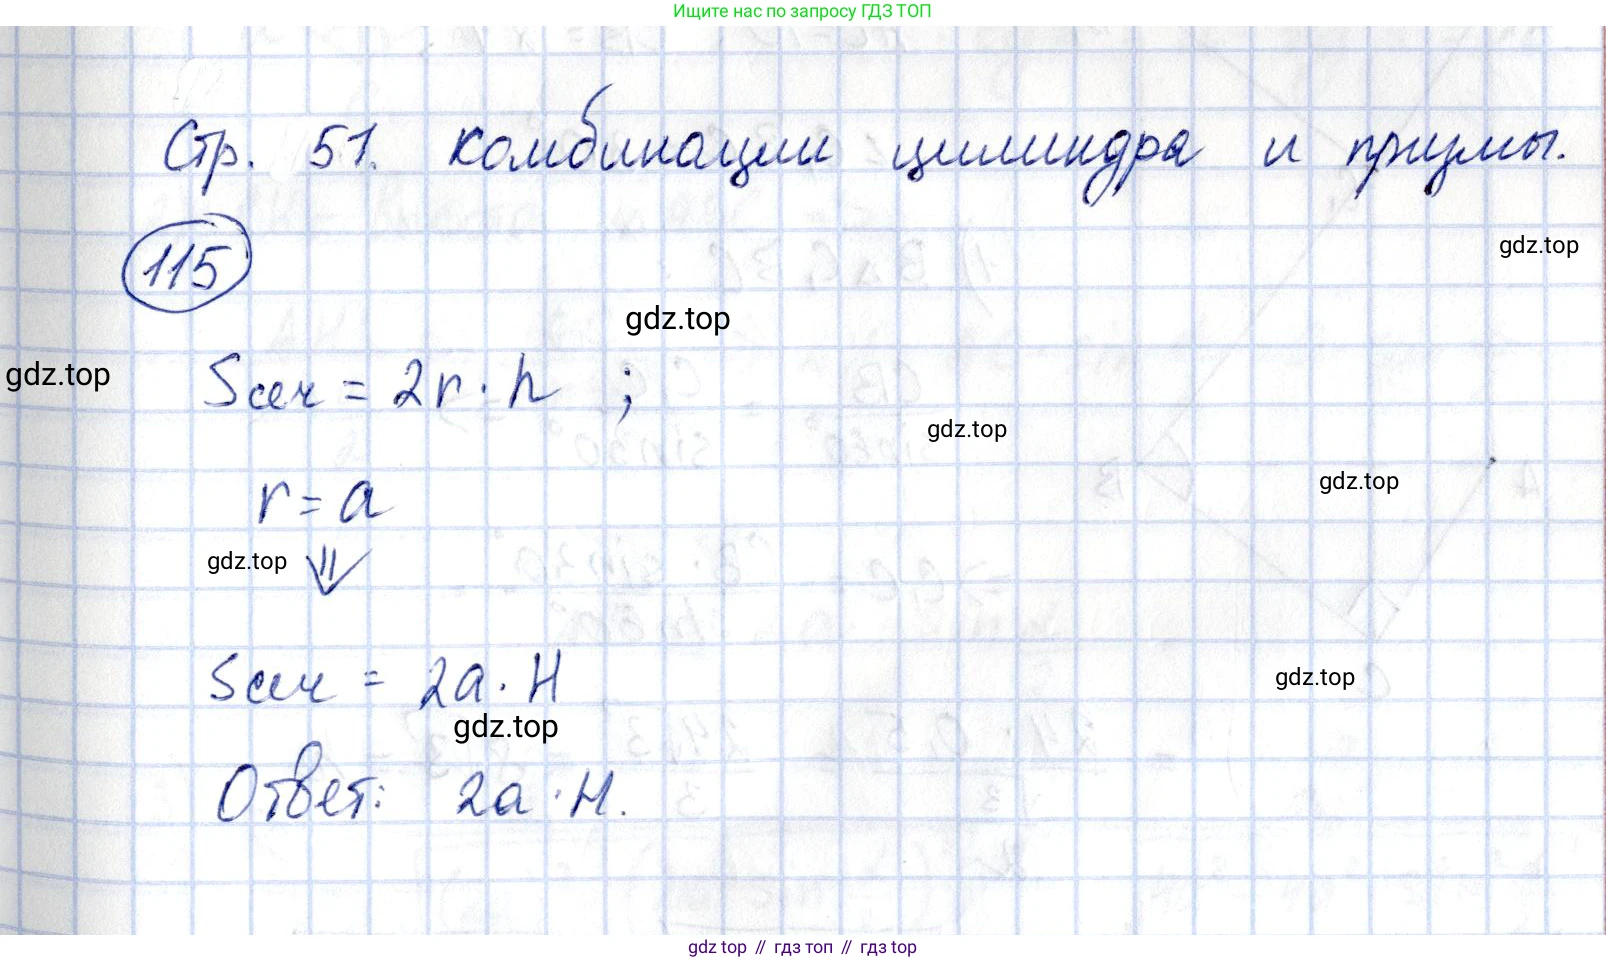 Ищите нас по запросу ГДЗ ТОП
Стр. 51. Комбинации цилиндра и призмы.
115
gdz.top
gdz.top
gdz.top
Sсеч = 2r · h ;
gdz.top
gdz.top
r = a
gdz.top
⇓
Sсеч = 2a · H
gdz.top
gdz.top
Ответ: 2a · H.
gdz.top // гдз топ // гдз top